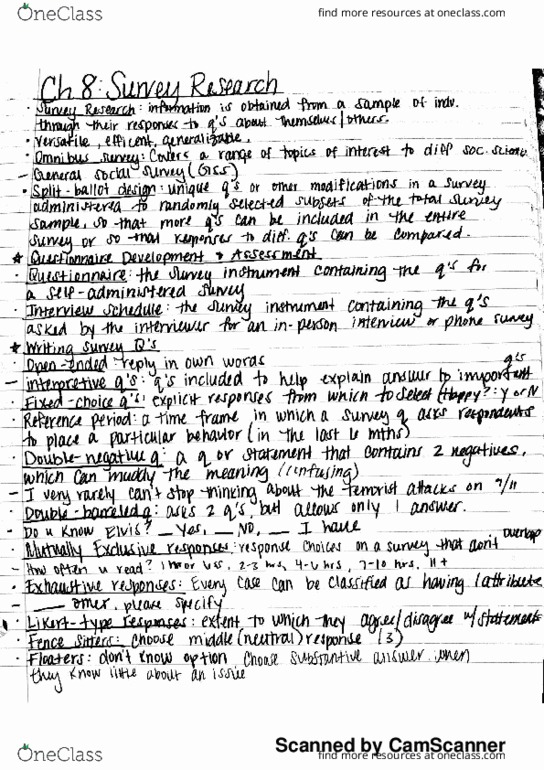 OneClass
find more resources at oneclass.com
Ch 8: Survey Research
· Survey Research: information is obtained from a sample of indv.
through their responses to q's about themselves/others.
· Versatile, efficent, generalizable.
· Omnibus survey: Covers a range of topics of interest to diff soc.
– General Social Survey (GSS)
· Split-ballot design: unique q's or other modifications in a survey
administered to randomly selected subsets of the total survey
sample, so that more q's can be included in the entire
survey or so that responses to diff. q's can be compared.
★ Questionnaire Development & Assessment
· Questionnaire: the survey instrument containing the q's for
a self-administered survey
· Interview schedule: the survey instrument containing the q's
asked by the interviewer for an in-person interview or phone survey
★ Writing Survey Q's
· Open-ended: reply in own words
– interpretive q's: q's included to help explain answer to important q's
· Fixed-choice q's: explicit responses from which to select (Happy?: Y or N
· Reference period: a time frame in which a survey q asks respondents
to place a particular behavior (in the last 6 mths)
· Double-negative q: a q or statement that contains 2 negatives,
which can muddy the meaning (confusing)
– I very rarely can't stop thinking about the terrorist attacks on 9/11
· Double-barreled q: asks 2 q's, but allows only 1 answer.
– Do u know Elvis? __ Yes, __ NO, __ I have
· Mutually Exclusive responses: response choices on a survey that don't overlap
– How often u read? 1 hr or less, 2-3 hrs, 4-6 hrs, 7-10 hrs, 11+
· Exhaustive responses: Every case can be classified as having 1 attribute
– ____ other, please specify
· Likert-type responses: extent to which they agree/disagree w/statements
· Fence Sitters: choose middle (neutral) response (3)
· Floaters: don't know option choose substantive answer when
they know little about an issue
Scanned by CamScanner
OneClass
find more resources at oneclass.com